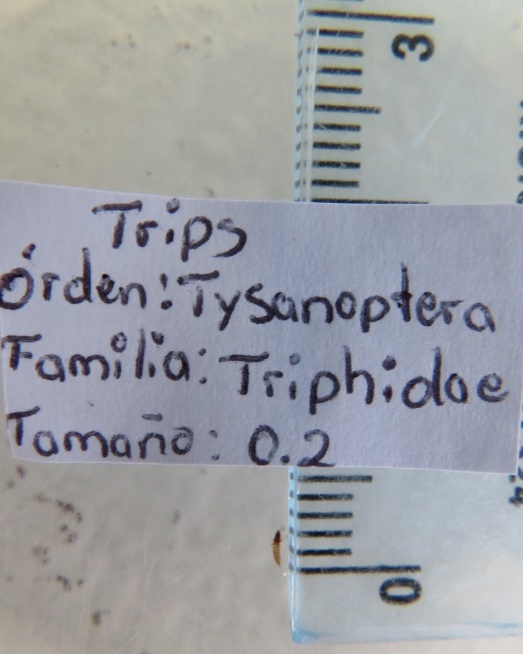 3
Trips
Órden: Tysanoptera
Familia: Triphidae
Tamaño: 0.2
0